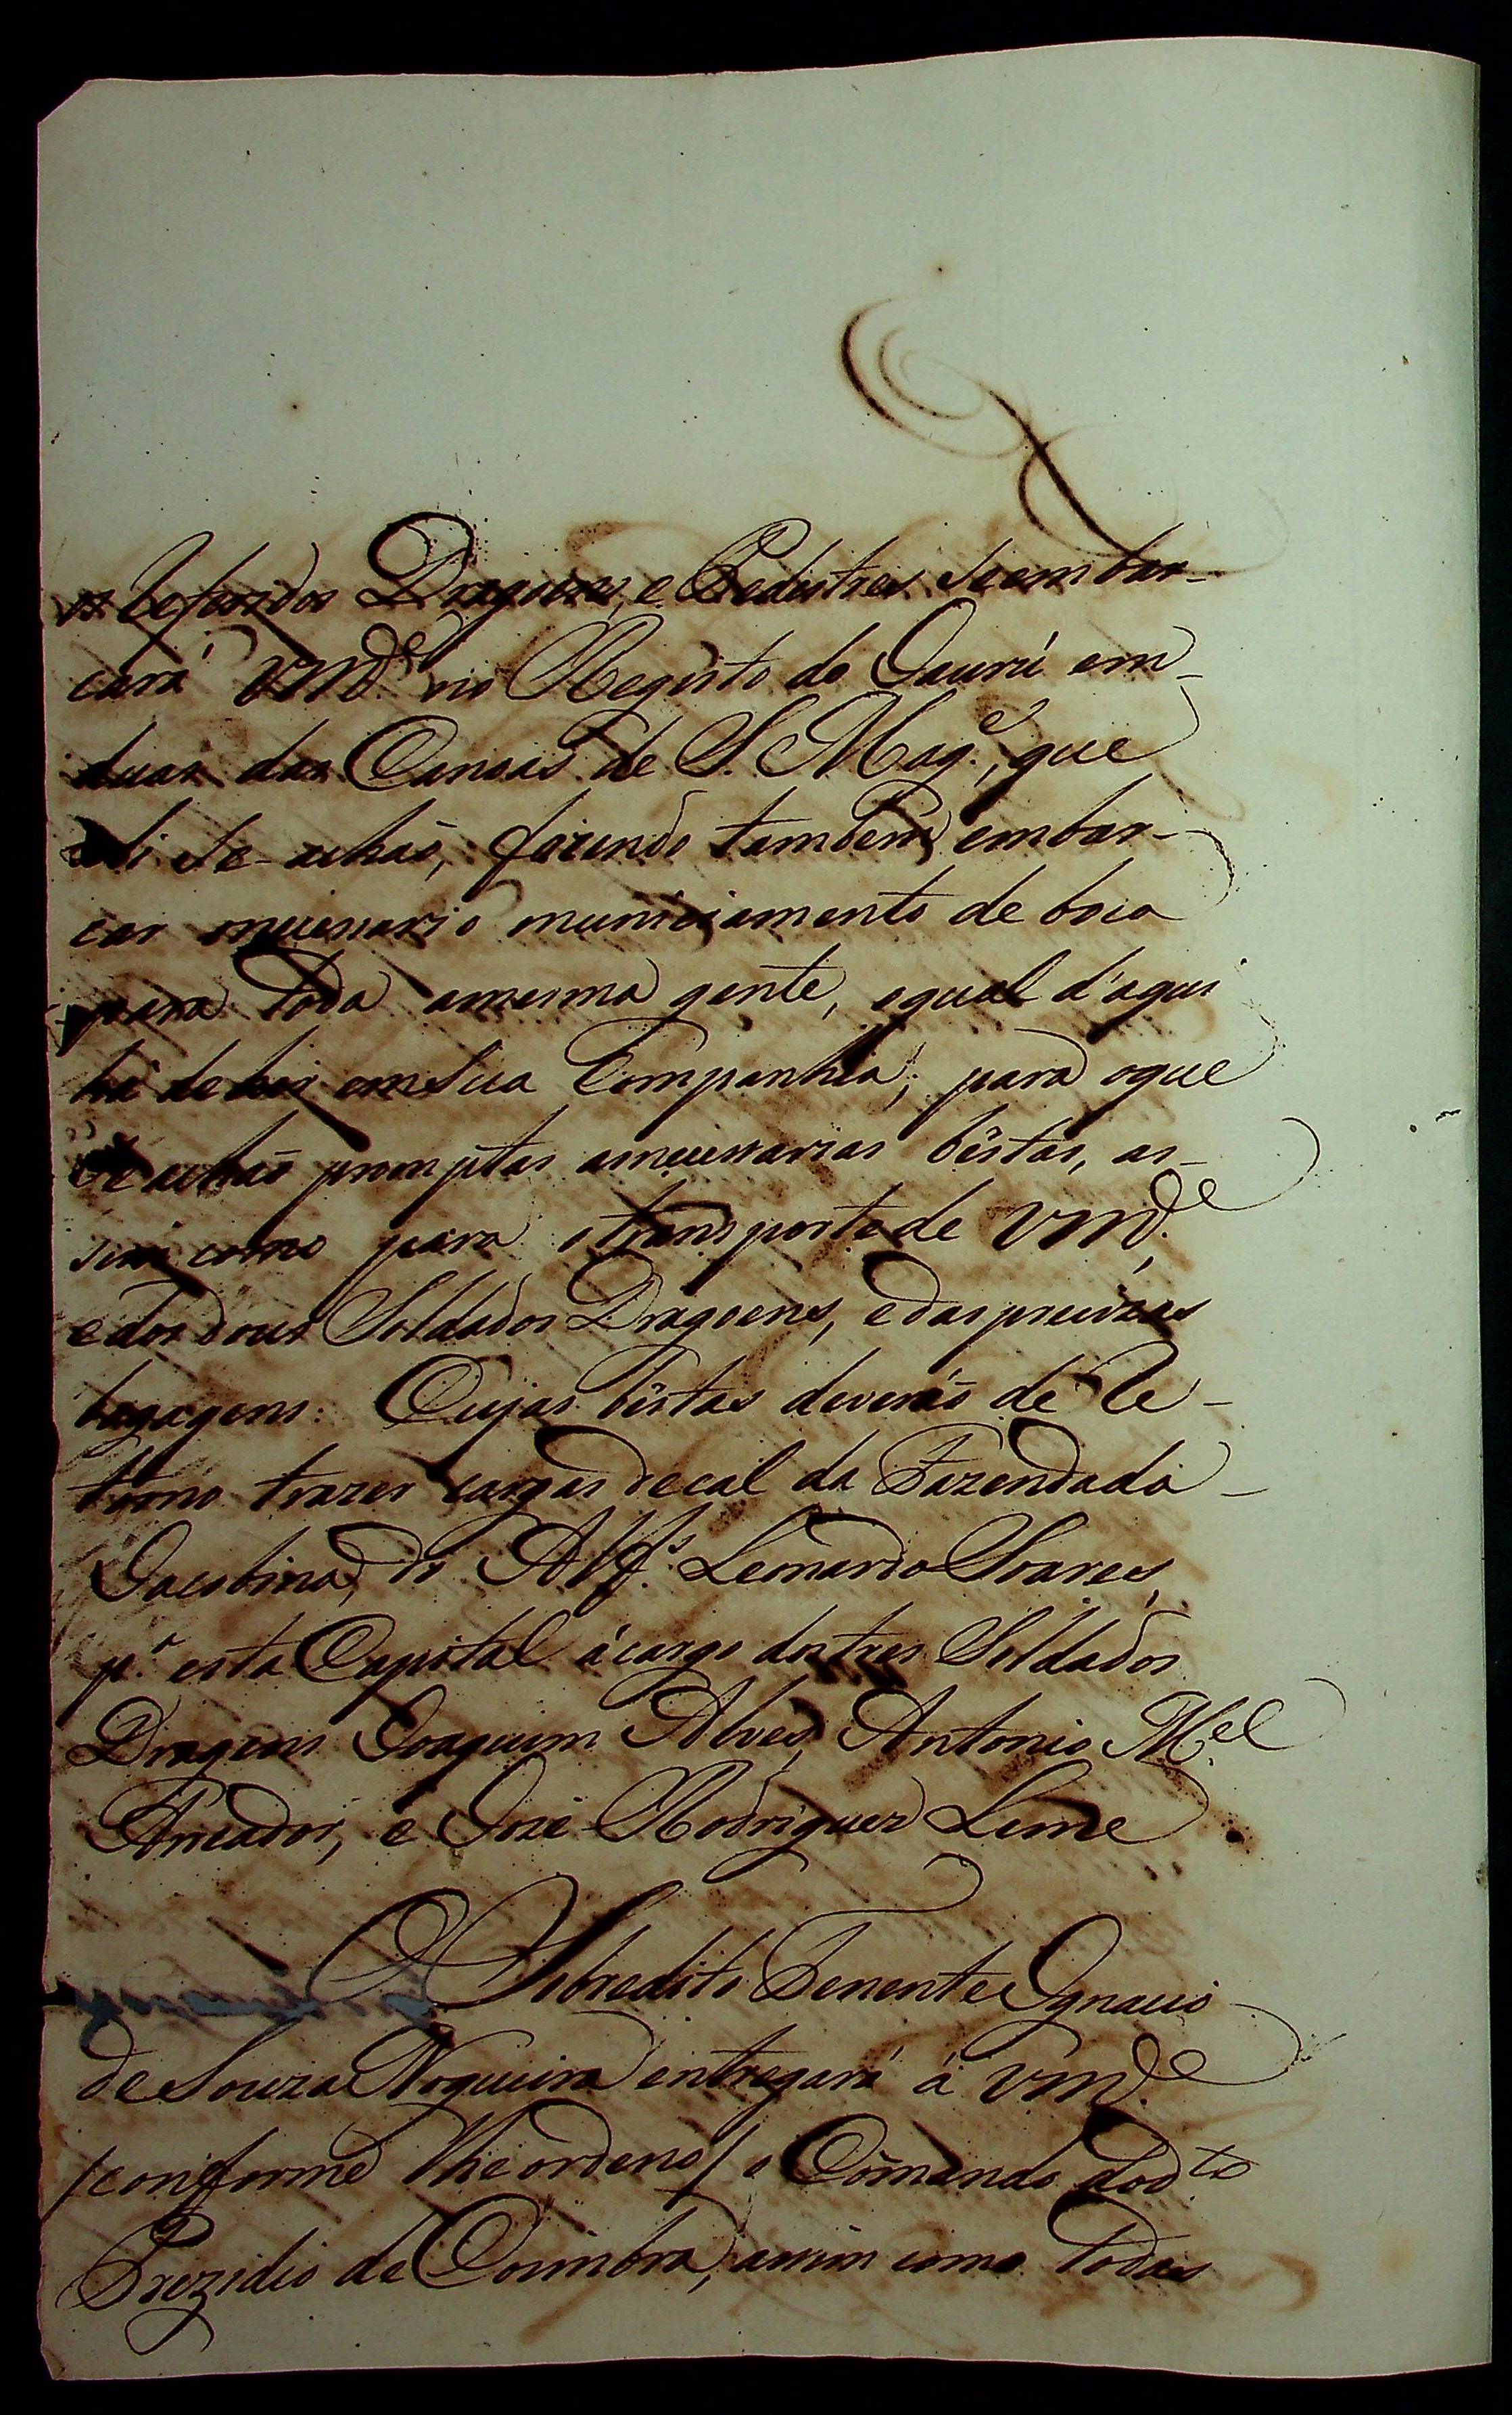 os referidos Dragoens, e Pedestres se embar-
cará VM.ce no Registo do Jaurú em
duas das Canoas de S. Mag.e, que
ali se achaõ, fazendo tambem embar-
car onecessario municiamento de boca
para toda amesma gente, oqual d'aqui
há de hir em sua Companhia; para oque
se achaõ promptas as necessarias bêstas, as-
sim como para o transporte de Vm.ce,
e dos dous Soldados Dragoens, e das precizas
bagagens: Cujas bêstas deveráõ de re-
torno trazer cargas de cal da Fazenda da
Jacobina, do Alf.s Leonardo Soares,
p.a esta Capital á cargo dos tres Soldados
Dragoens Joaquim Alves, Antonio M.el
Arreador, e José Rodrigues Leme
O Sobredito Tenente Ignacio
de Souza Nogueira entregará á Vm.ce
/conforme lhe ordeno/ o Cõmando do d.to
Prezidio de Coimbra, assim como todas